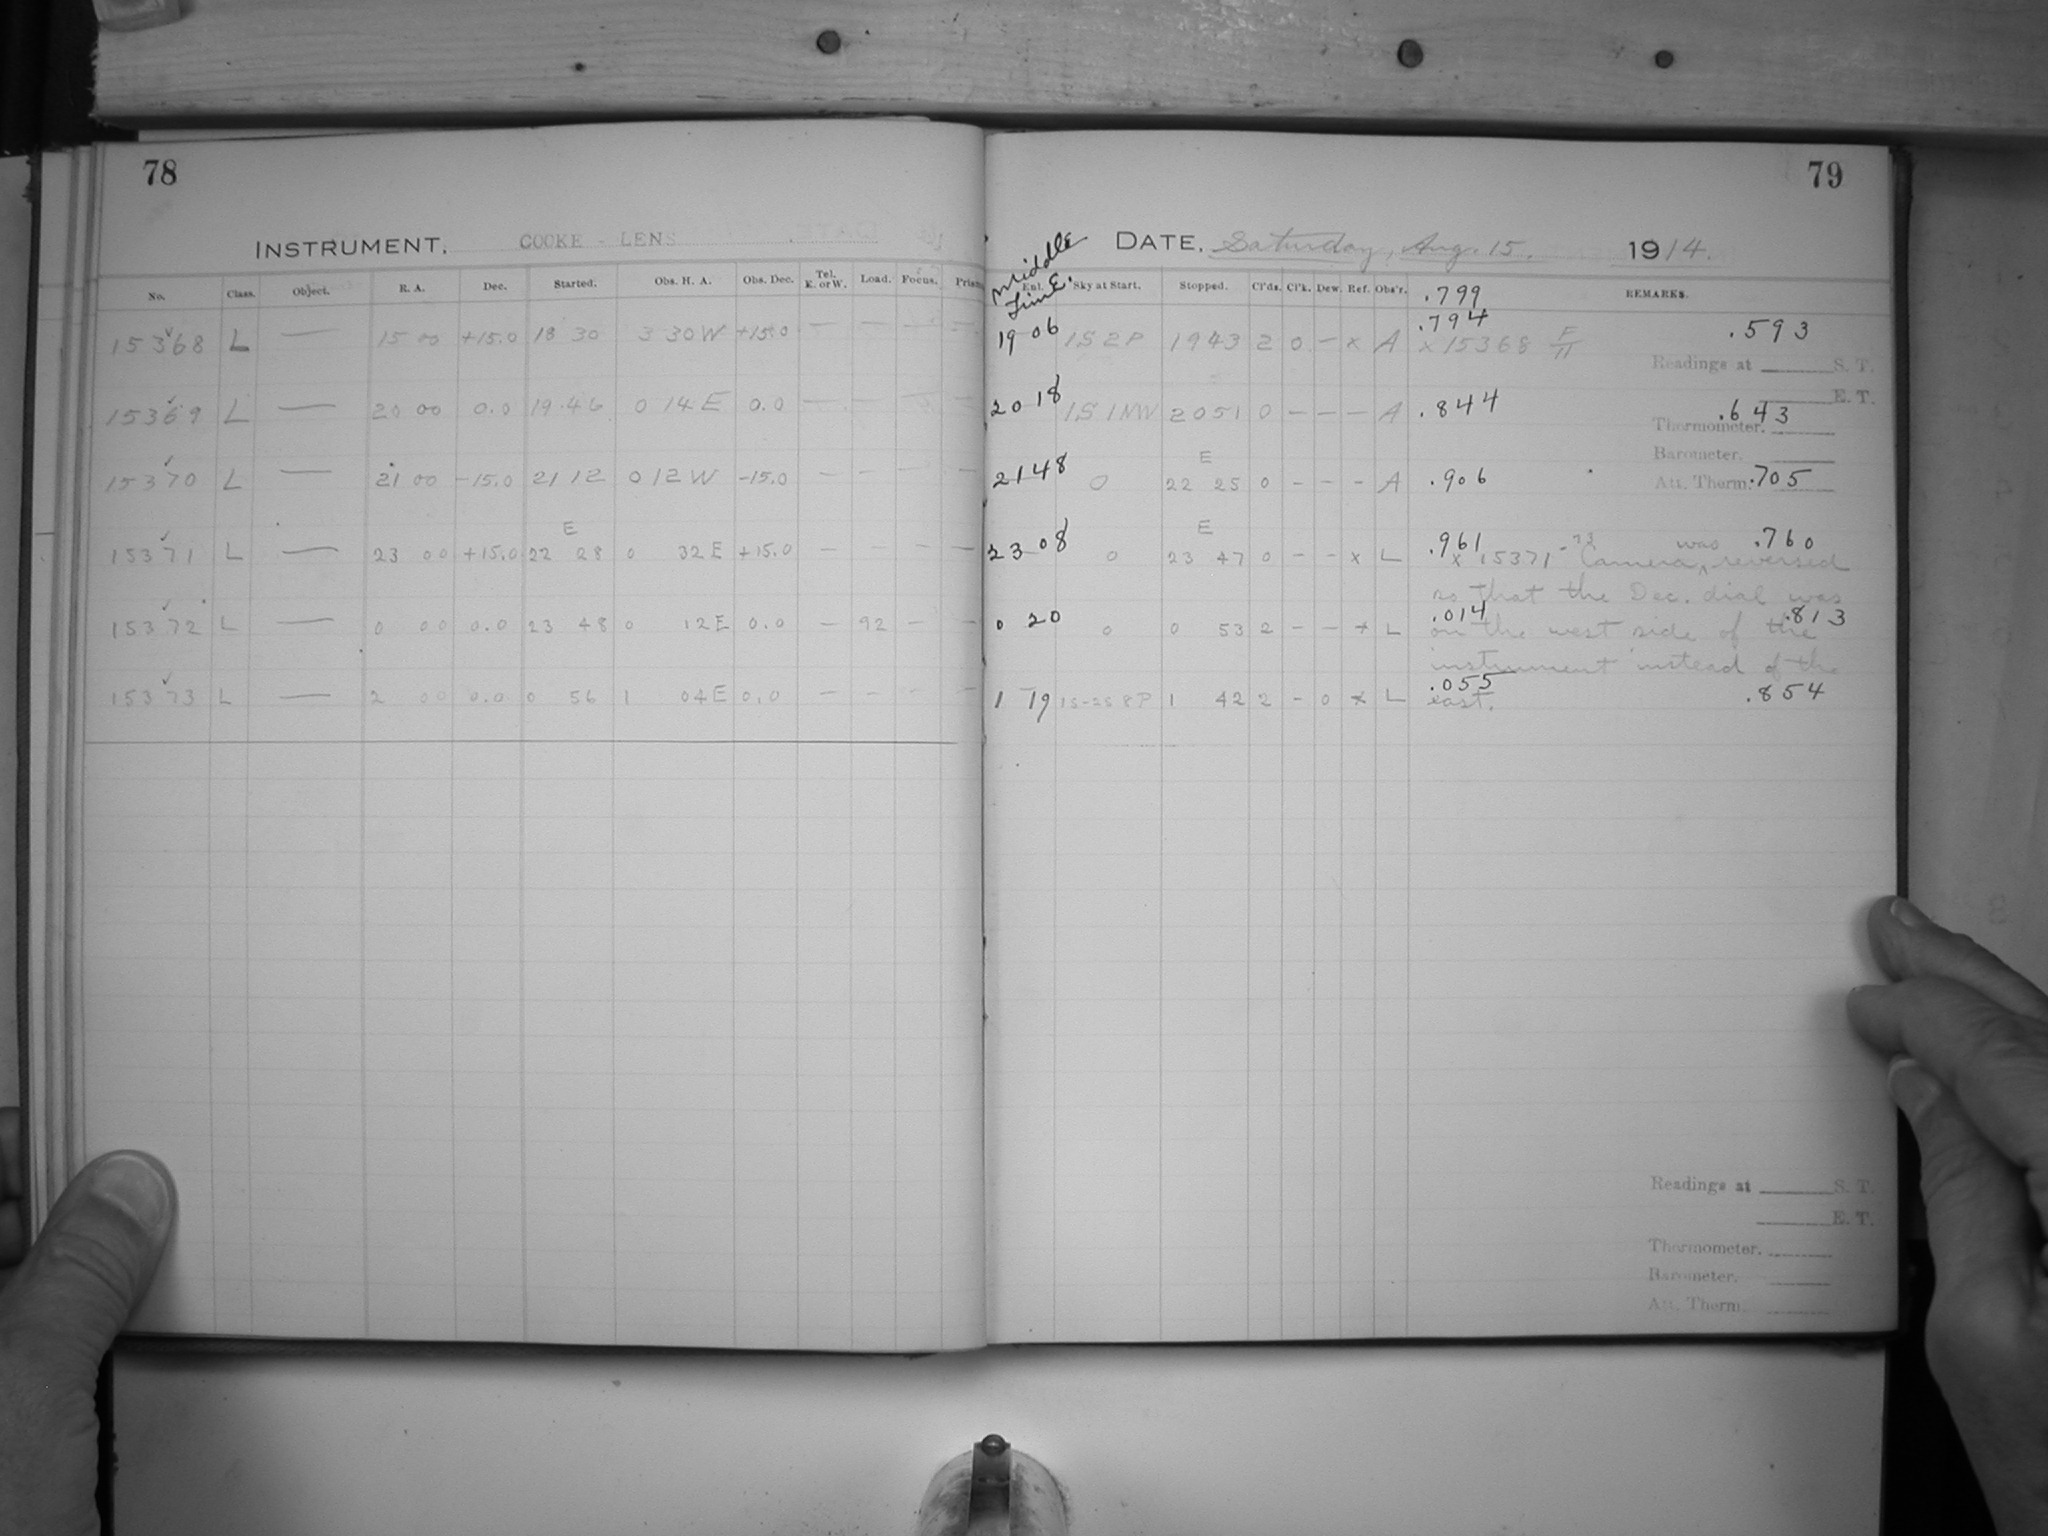 78
79
INSTRUMENT, COOKE - LENS
DATE, Saturday, Aug. 15. 1914.
No. Class. Object. R. A. Dec. Started. Obs. H. A. Obs. Dec. Tel. E. or W. Load. Focus. Prism
Middle Time. Enl. Sky at Start. Stopped. Cl'ds. Cl'k. Dew. Ref. Obs'r. REMARKS.
.799
.794
15368 L — 15 00 +15.0 18 30 3 30 W +15.0 — — — — 19 06 1S 2P 1943 2 0 — x A x 15368 F/11 .593
Readings at S. T.
E. T.
15369 L — 20 00 0.0 19 46 0 14 E 0.0 — — — — 20 18 1S 1NW 2051 0 — — — A .844 .643
Thermometer.
Barometer.
E
15370 L — 21 00 -15.0 21 12 0 12 W -15.0 — — — — 21 48 0 22 25 0 - - - A .906 Att. Therm. .705
E E
15371 L — 23 00 +15.0 22 28 0 32 E +15.0 — — — — 23 08 0 23 47 0 - - x L .961 .760
x 15371-73 Camera was reversed
so that the Dec. dial was
15372 L — 0 00 0.0 23 48 0 12 E 0.0 — 92 — — 0 20 0 0 53 2 - - x L .014 .813
on the west side of the
instrument instead of the
15373 L — 2 00 0.0 0 56 1 04 E 0.0 — — — — 1 19 1S-2S 8P 1 42 2 - 0 x L .055 .854
east.
Readings at S. T.
E. T.
Thermometer.
Barometer.
Att. Therm.